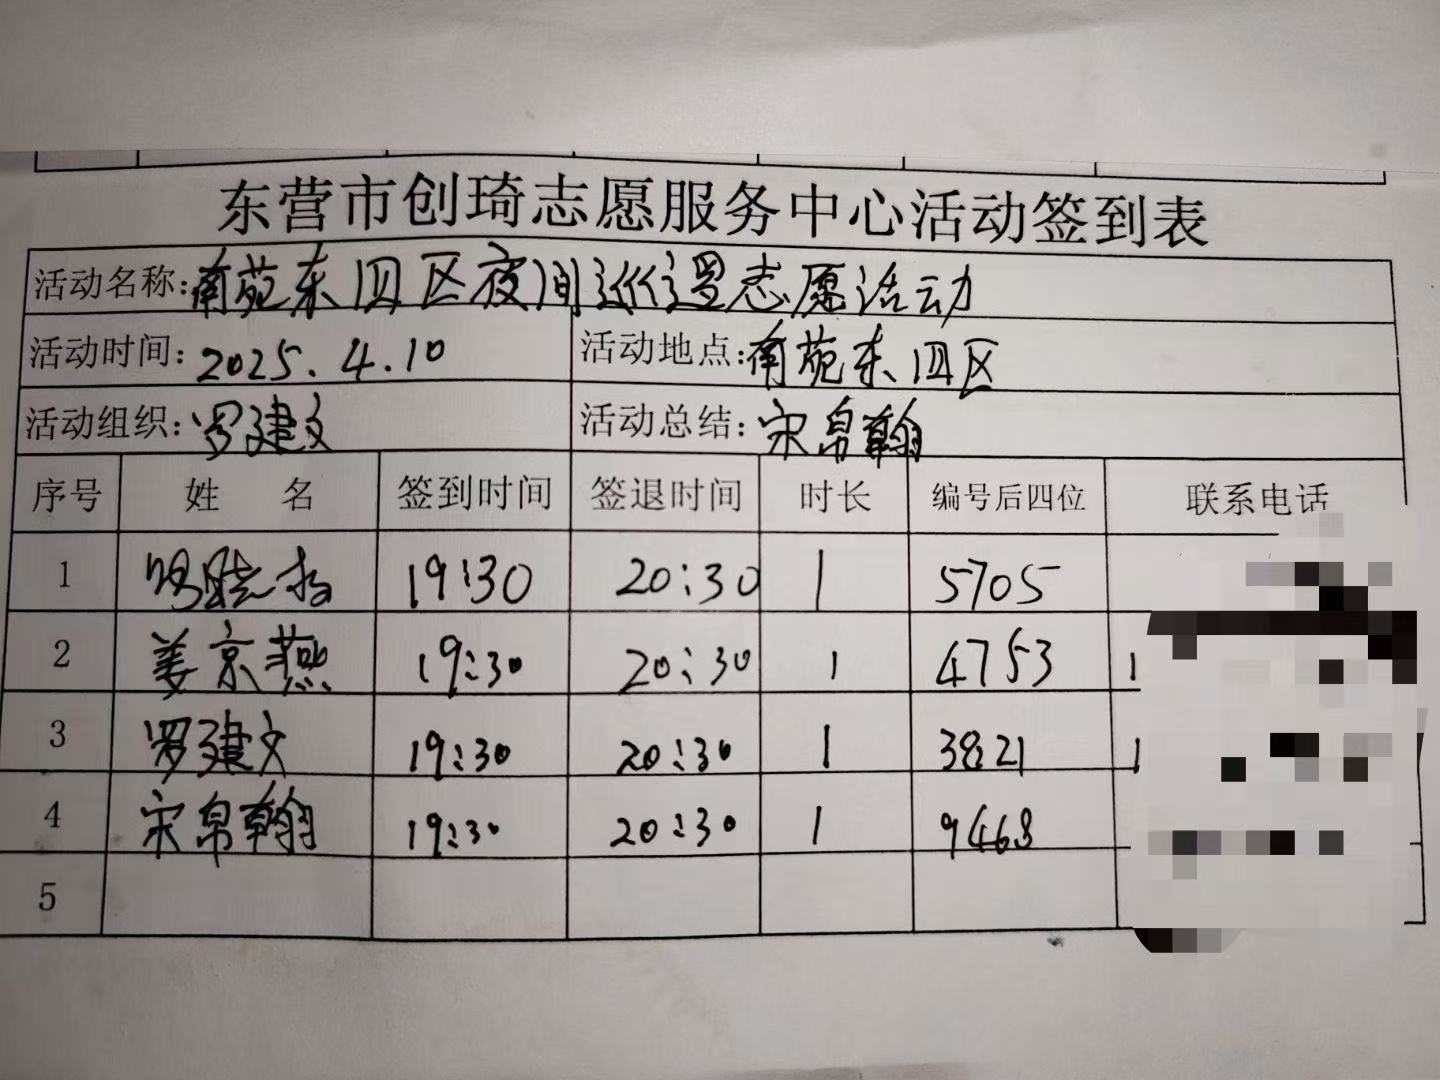 东营市创琦志愿服务中心活动签到表
活动名称:南苑东四区夜间巡逻志愿活动
活动时间:2025.4.10 活动地点:南苑东四区
活动组织:罗建文 活动总结:宋帛翰
序号 姓 名 签到时间 签退时间 时长 编号后四位 联系电话
1 19:30 20:30 1 5705
2 姜京燕 19:30 20:30 1 4753 1
3 罗建文 19:30 20:30 1 3821 1
4 宋帛翰 19:30 20:30 1 9468
5